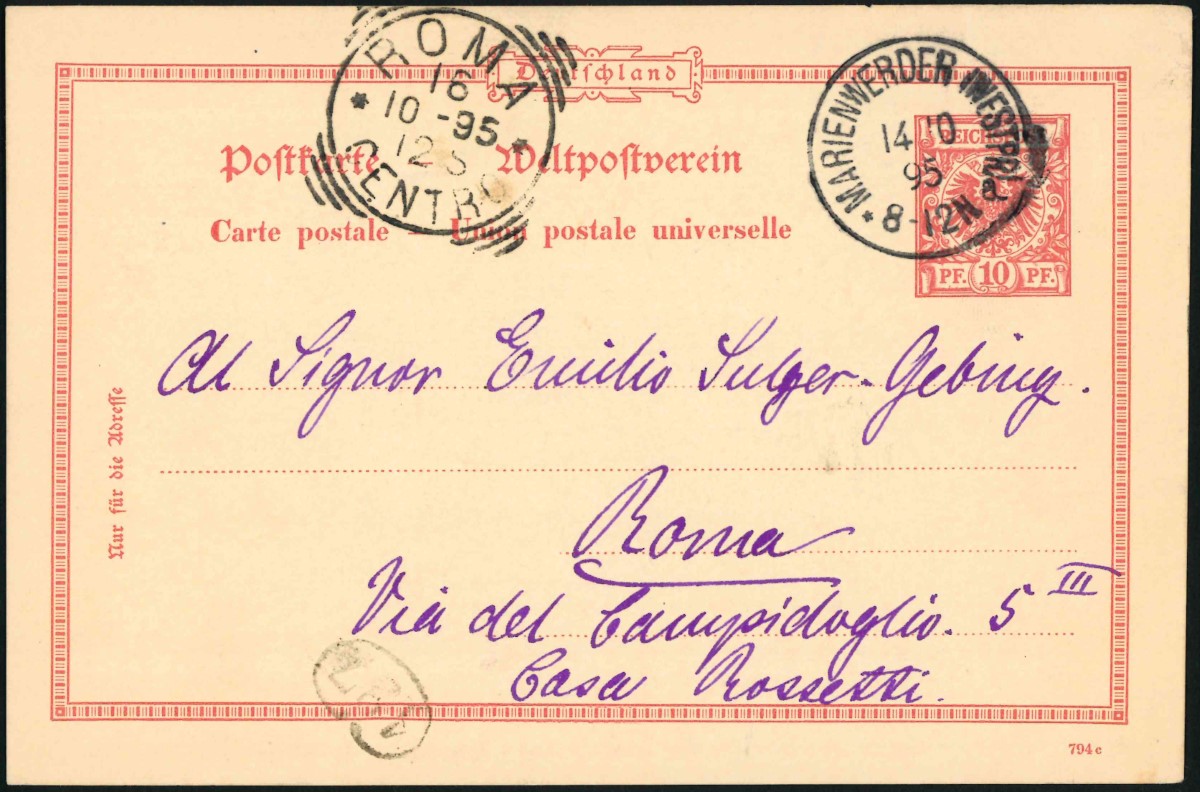 Deutschland
Postkarte — Weltpostverein
Carte postale — Union postale universelle
ROMA
16
10 - 95
12 S
CENTRO
MARIENWERDER (WESTPR.)
14 10
95
8-12 N
REICHSPOST
PF. 10 PF.
Al Signor Emilio Sulger-Gebing.
Roma
Via del Campidoglio. 5 III
Casa Rossetti.
Nur für die Adresse
794 c